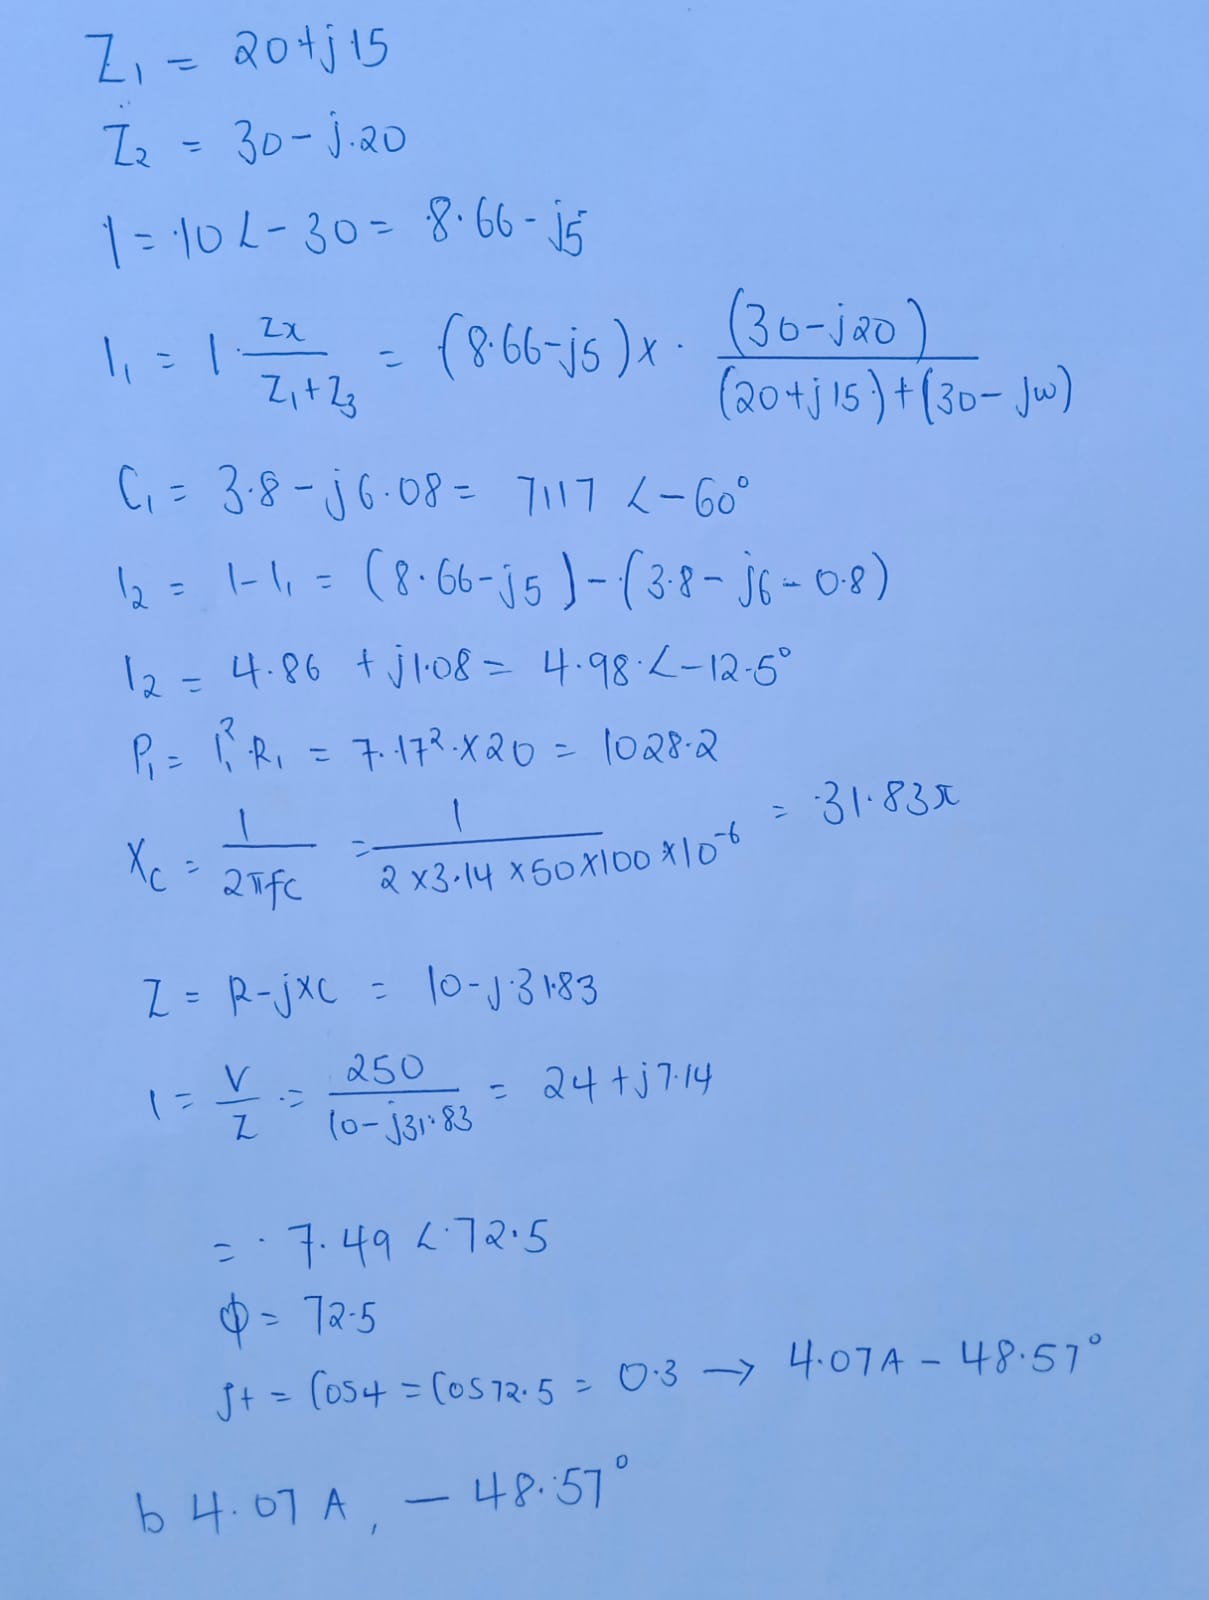 Z₁ = 20+j15
Z₂ = 30-j.20
I = 10∠-30 = 8.66-j5
I₁ = I · Zx / (Z₁+Z₃) = (8.66-j5) x · (30-j20) / ((20+j15)+(30-jw))
C₁ = 3.8-j6.08 = 7117 ∠-60°
I₂ = I-I₁ = (8.66-j5)-(3.8-j6-0.8)
I₂ = 4.86 +j1.08 = 4.98.∠-12.5°
P₁ = I₁².R₁ = 7.17².x20 = 1028.2
Xc = 1 / 2πfc = 1 / 2x3.14x50x100x10⁻⁶ = .31.83π
Z = R-jxc = 10-j.31.83
I = V/Z = 250 / 10-j31.83 = 24+j7.14
= . 7.49 ∠.72.5
ϕ = 72.5
Jt = Cos4 = Cos72.5 = 0.3 → 4.07A - 48.57°
b 4.07 A, - 48.57°